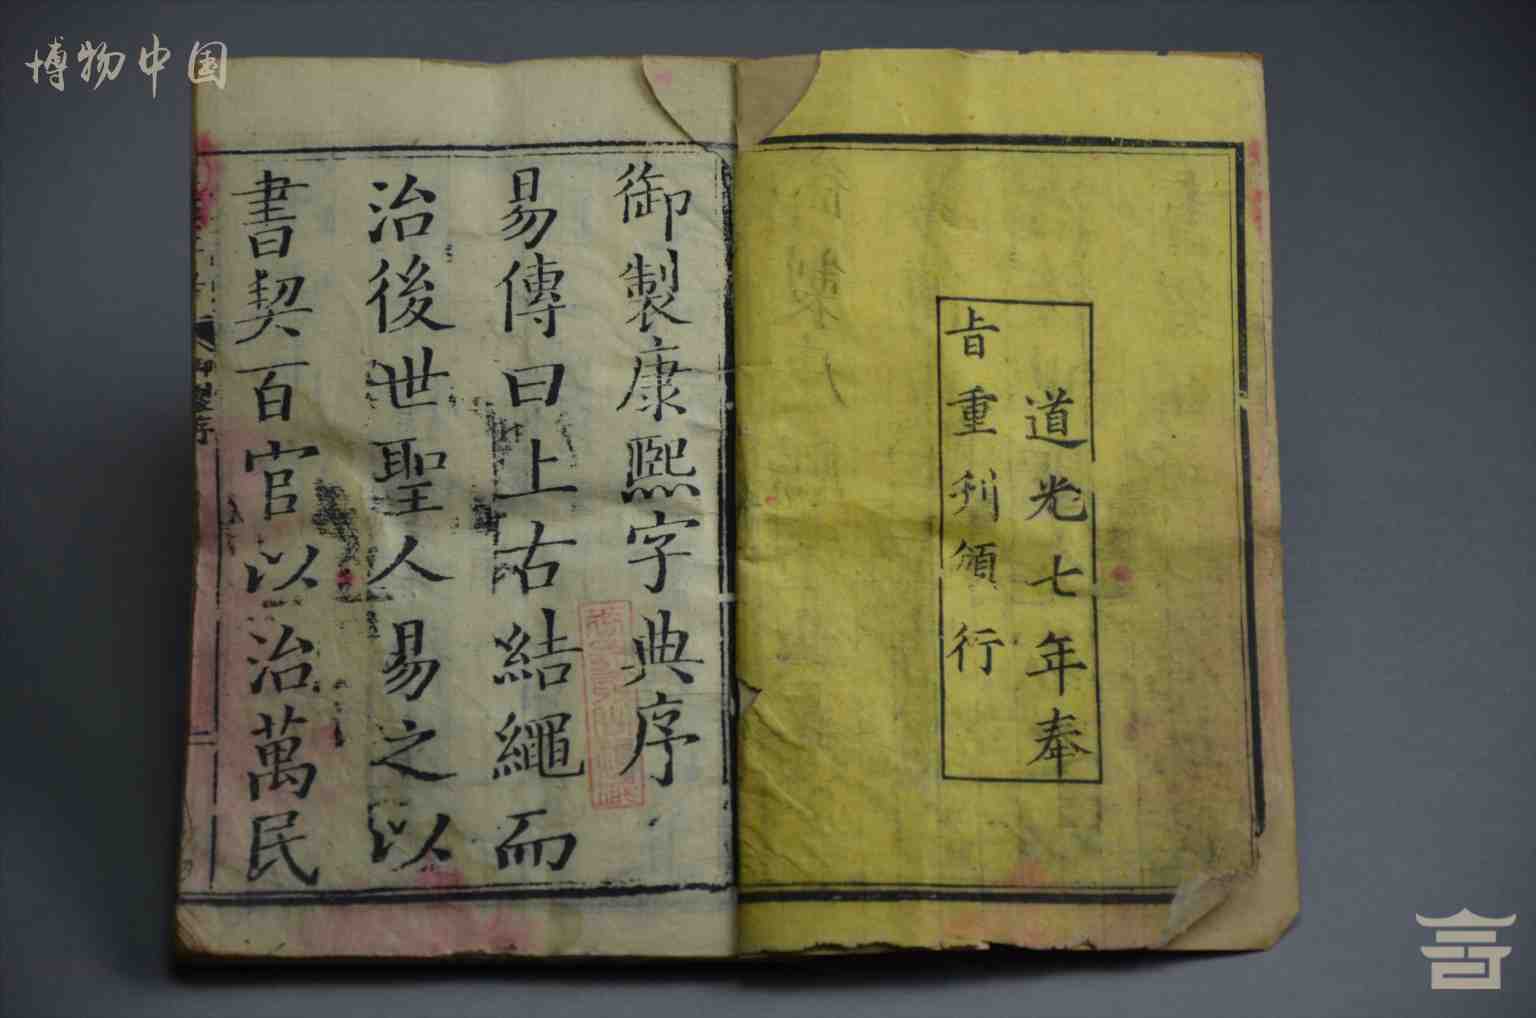 博物中国
道光七年奉
旨重刊頒行
御製康熙字典序
易傳曰上古結繩而
治後世聖人易之以
書契百官以治萬民